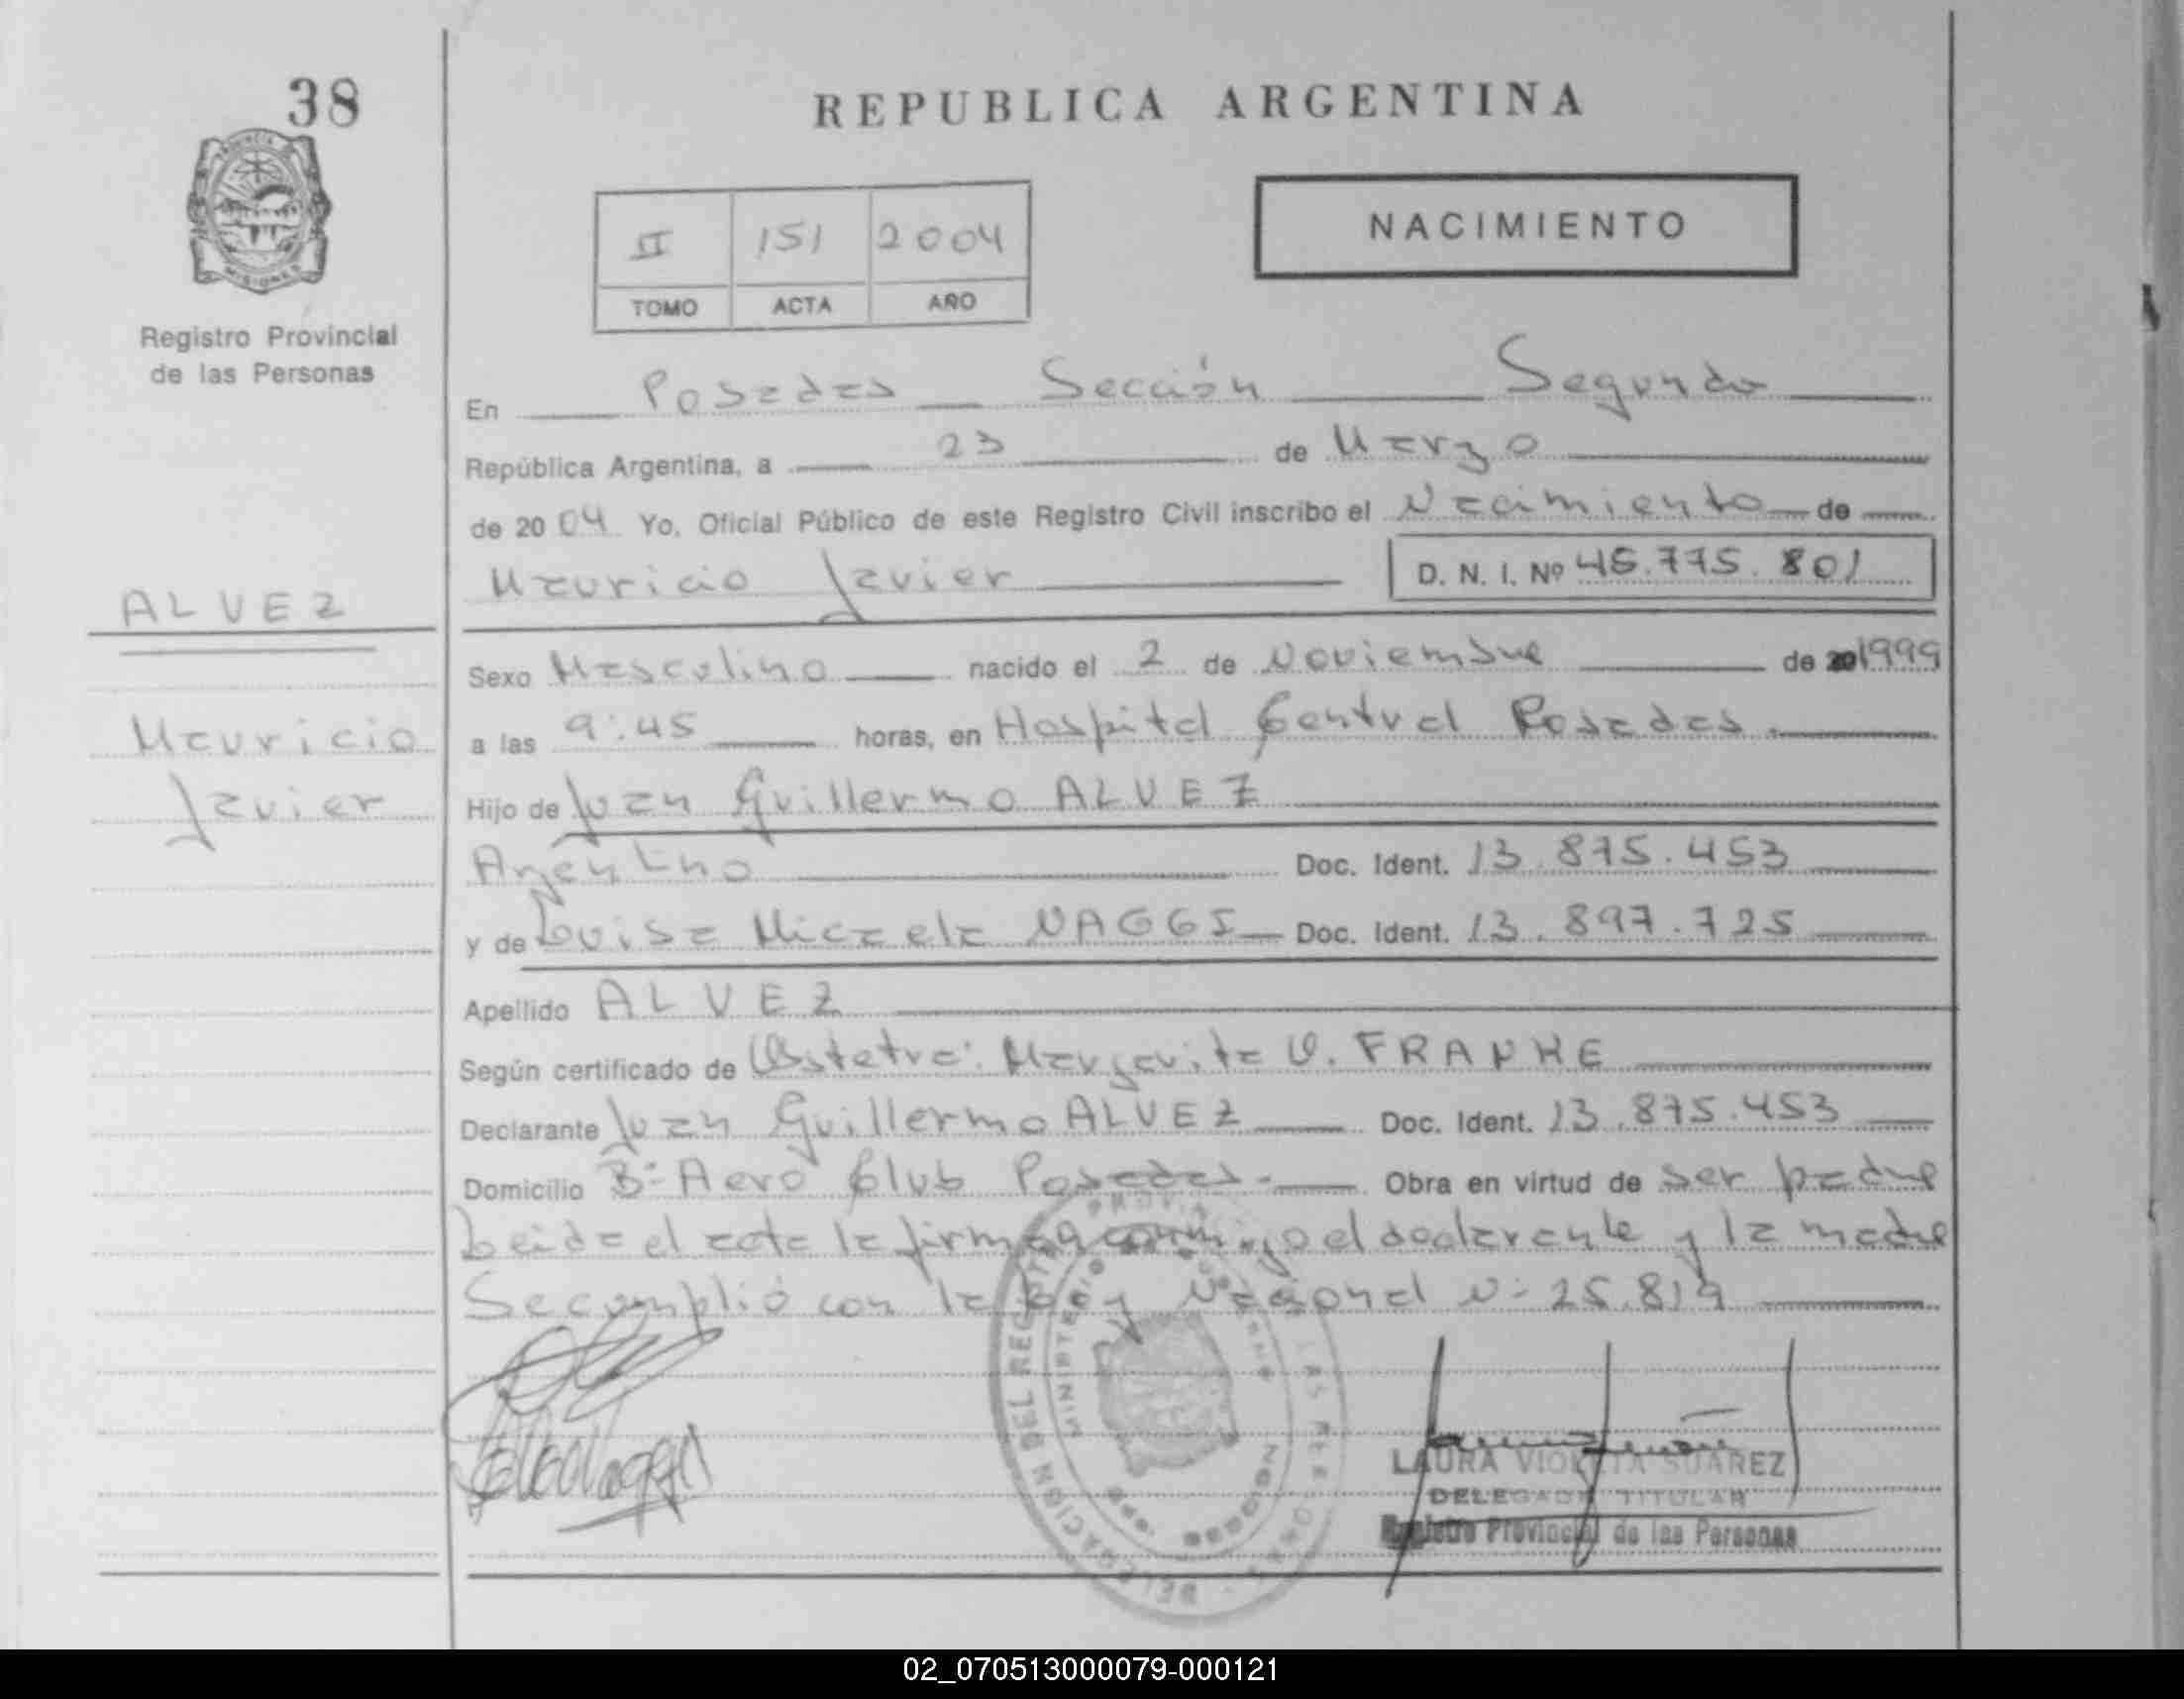 38
REPUBLICA ARGENTINA
NACIMIENTO
II 151 2004
TOMO ACTA AÑO
Registro Provincial
de las Personas
En Posadas Sección Segunda
República Argentina, a 23 de Marzo
de 2004 Yo, Oficial Público de este Registro Civil inscribo el Nacimiento de
Mauricio Javier D. N. I. Nº 45.775.801
ALVEZ
Mauricio
Javier
Sexo Masculino nacido el 2 de Noviembre de 1999
a las 9:45 horas, en Hospital Central Posadas.
Hijo de Juan Guillermo ALVEZ
Argentino Doc. Ident. 13.875.453
y de Luisa Micaela NAGGI Doc. Ident. 13.897.725
Apellido ALVEZ
Según certificado de Obstetra: Margarita V. FRANKE
Declarante Juan Guillermo ALVEZ Doc. Ident. 13.875.453
Domicilio Bº Aero Club Posadas.- Obra en virtud de ser padre
Leida el acta la firman conmigo el declarante y la madre
Se cumplió con la Ley Nacional Nº 25.819
DELEGACION DEL REGISTRO
MINISTERIO
MISIONES
LAURA VIOLETA SUAREZ
DELEGADA TITULAR
Registro Provincial de las Personas
02_070513000079-000121